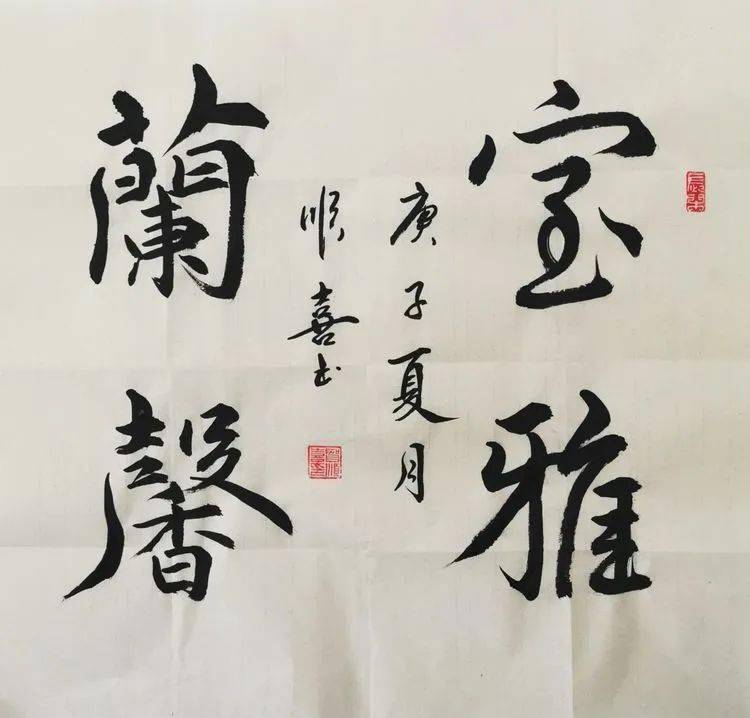 室雅
蘭馨
庚子夏月
顺喜书